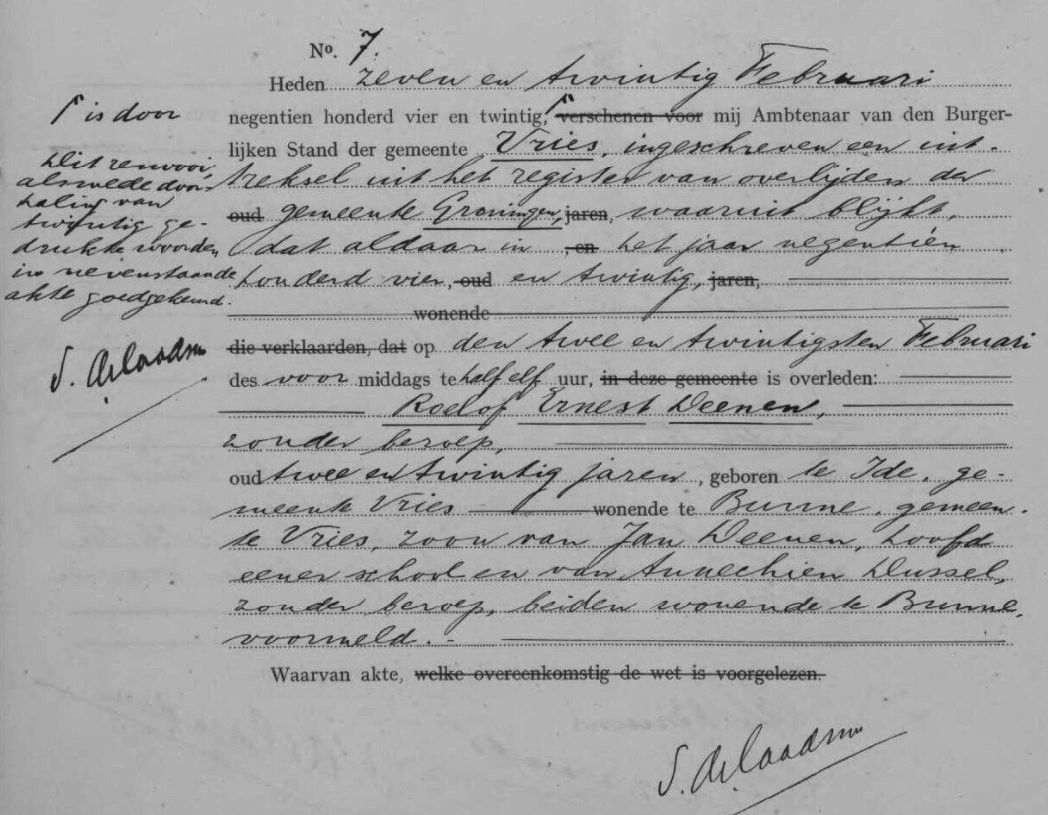 No. 7.
Heden zeven en twintig Februari
negentien honderd vier en twintig, Γ verschenen voor mij Ambtenaar van den Burger-
lijken Stand der gemeente Vries, ingeschreven een uit-
treksel uit het register van overlijden der
oud gemeente Groningen, jaren, waaruit blijkt,
dat aldaar in , en het jaar negentien
honderd vier, oud en twintig, jaren,
wonende
die verklaarden, dat op den twee en twintigsten Februari
des voor middags te half elf uur, in deze gemeente is overleden:
Roelof Ernest Deenen,
zonder beroep,
oud twee en twintig jaren, geboren te Ide, ge-
meente Vries wonende te Bunne, gemeen-
te Vries, zoon van Jan Deenen, hoofd
eener school en van Annechien Dussel,
zonder beroep, beiden wonende te Bunne,
voormeld. -
Waarvan akte, welke overeenkomstig de wet is voorgelezen.
Γ is door
Dit renvooi,
alsmede door-
haling van
twintig ge-
drukte woorden
in nevenstaande
akte goedgekeurd.